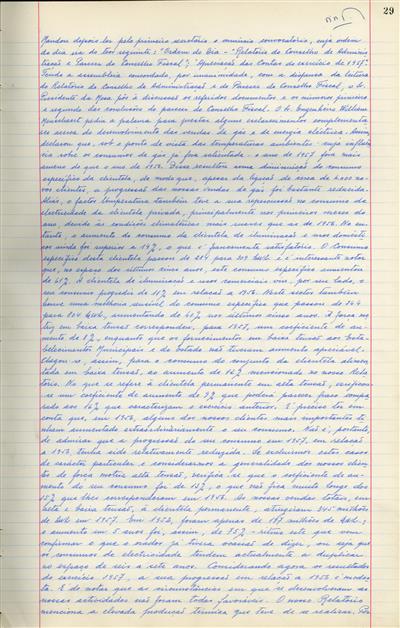 29
Mandou depois ler pelo primeiro secretário o anúncio convocatório, cuja ordem
do dia era do teor seguinte: "Ordem do Dia - "Relatório do Conselho de Adminis-
tração e Parecer do Conselho Fiscal"; "Apreciação das Contas do exercício de 1957".
Tendo a assembleia concordado, por unanimidade, com a dispensa da leitura
do Relatório do Conselho de Administração e do Parecer do Conselho Fiscal, o Sr.
Presidente da Mesa pôs à discussão os referidos documentos e os números primeiro
e segundo das conclusões do parecer do Conselho Fiscal. O Sr. Engenheiro William
pediu a palavra para prestar alguns esclarecimentos complementa-
res acerca do desenvolvimento das vendas de gás e de energia eléctrica. Assim,
declarou que, sob o ponto de vista das temperaturas ambientes - cuja influên-
cia sobre os consumos de gás já foi salientada - o ano de 1957 foi mais
ameno do que o ano de 1956. Disso resultou uma diminuição do consumo
específico da clientela, de modo que, apesar da ligação de cerca de 4.200 no-
vos clientes, a progressão das nossas vendas de gás foi bastante reduzida.
Aliás, o factor temperatura também teve a sua repercussão no consumo da
electricidade da clientela privada, principalmente nos primeiros meses do
ano, devido às condições climatéricas mais suaves que as de 1956. No en-
tanto, o aumento do consumo da clientela de iluminação e usos domésti-
cos ainda foi superior a 14%, o que é francamente satisfatório. O consumo
específico desta clientela passou de 284 para 309 kwh. e é interessante notar
que, no espaço dos últimos cinco anos, este consumo específico aumentou
de 61%. A clientela de iluminação e usos comerciais viu, por seu lado, o
seu consumo progredir de 11% em relação a 1956. Neste sector também
houve uma melhoria sensível do consumo específico que passou de 764
para 804 kwh, aumentando de 40% nos últimos cinco anos. A força mo-
triz em baixa tensão correspondeu, para 1957, um coeficiente de au-
mento de 8%, enquanto que os fornecimentos em baixa tensão aos Esta-
belecimentos Municipais e do Estado não tiveram aumento apreciável.
Chegou-se, assim, para o consumo do conjunto da clientela alimen-
tada em baixa tensão, ao aumento de 12% mencionado no nosso Rela-
tório. No que se refere à clientela permanente em alta tensão, verificou-
se um coeficiente de aumento de 9% que poderá parecer fraco compa-
rado aos 16% que caracterizaram o exercício anterior. É preciso ter em
conta que, em 1956, alguns dos nossos clientes mais importantes ti-
nham aumentado extraordinariamente o seu consumo. Não é, portanto,
de admirar que a progressão do seu consumo em 1957, em relação
a 1956, tenha sido relativamente reduzida. Se excluirmos estes casos
de carácter particular e considerarmos a generalidade dos nossos clien-
tes de força motriz alta tensão, verifica-se que o coeficiente de au-
mento do seu consumo foi de 13%, o que não fica muito longe dos
15% que lhes corresponderam em 1956. As nossas vendas totais, em
alta e baixa tensão, à clientela permanente, atingiram 345 milhões
de kwh em 1957. Em 1952, foram apenas de 197 milhões de kwh.;
o aumento em 5 anos foi, assim, de 75% - ritmo este que vem
confirmar o que o orador já tivera ocasião de dizer, ou seja que
os consumos de electricidade tendem actualmente a duplicar
no espaço de seis a sete anos. Considerando agora os resultados
do exercício 1957, a sua progressão em relação a 1956 é modes-
ta. É de notar que as circunstâncias em que se desenvolveram as
nossas actividades não foram todas favoráveis. O nosso Relatório
menciona a elevada produção térmica que teve de se realizar.